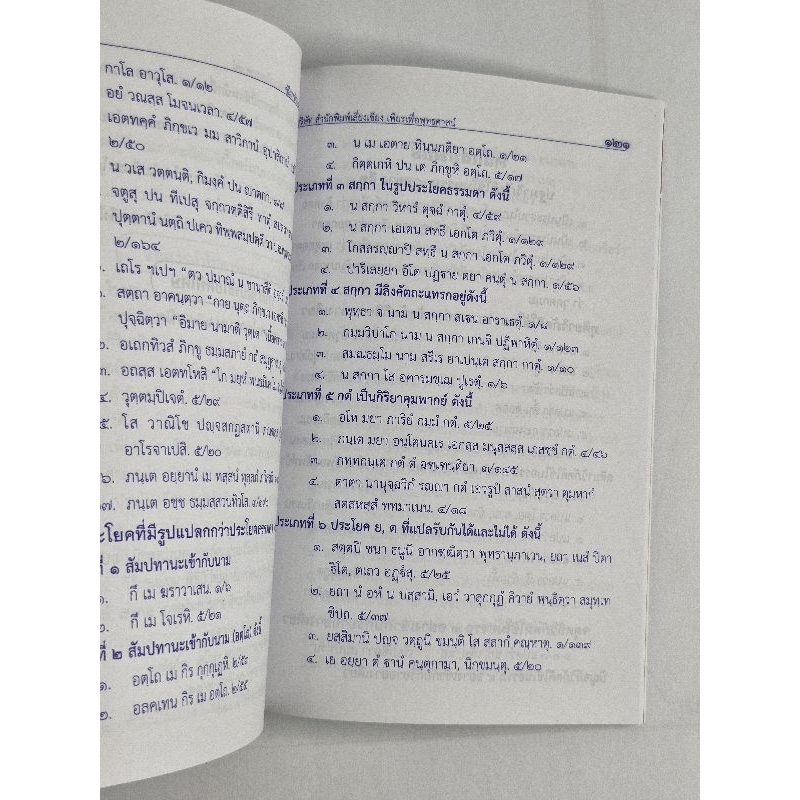 กาโล อาวุโส. ๑/๑๒
อยํ วณสฺส โมจนเวลา. ๔/๕๗
เอตทคฺคํ ภิกฺขเว มม สาวิกานํ
๒/๕๐
น วเส วตฺตนฺติ, กิมงฺคํ ปน
จตูสุ ปน ทีเปสุ จกฺกวตฺติสิรึ
ปุตฺตานํ นตฺถิ ปเคว ทิพฺพสมฺปตฺติ
๒/๑๖๔
เถโร ฯเปฯ “ตว ปมาณํ น
สตฺถา อาคนฺตฺวา “กาย นุตฺถ
ปุจฺฉิตฺวา “อิมาย นามาติ วุตฺเต
อเถกทิวสํ ภิกฺขู ธมฺมสภายํ
อถสฺส เอตทโหสิ “โก
๔. วุตฺตมฺปิเจตํ ๕/๒๙
๕. โส วาณิโช
อาโรจาเปสิ. ๕/๒๐
๖. ภนฺเต อยฺยานํ เม
๗. ภนฺเต อชฺช ธมฺมสฺสวนทิวโส.
ะโยคที่มีรูปแปลกกว่าประโยคธรรมดา
ที่ ๑ สัมปทานะเข้ากับนาม
๑. กึ เม ฆราวาเสน. ๑/๖
๒. กึ เม โจเรหิ. ๕/๒๑
ที่ ๒ สัมปทานะเข้ากับนาม (อตฺโถ) ดังนี้
๑. อตฺโถ เม กิร กุกฺกุเฏหิ. ๒/๕๔
๒. อลตฺเตน กิร เม อตฺโถ. ๒/๕๔
สำนักพิมพ์เลี่ยงเชียง เพียรเพื่อพุทธศาสน์ ๑๒๑
๓. น เม เอตาย ทินฺนภติยา อตฺโถ. ๑/๒๑
๔. กิตฺตเกหิ ปน เต ภิกฺขูหิ อตฺโถ. ๕/๑๗
ประเภทที่ ๓ สกฺกา ในรูปประโยคธรรมดา ดังนี้
๑. น สกฺกา วิหารํ ตุจฺฉํ กาตุํ. ๔/๕๙
๒. น สกฺกา เอเตน สทฺธึ เอกโต ภวิตุํ. ๑/๑๒๙
๓. โกสลรญฺญาปิ สทฺธึ น สกฺกา เอกโต ภวิตุํ. ๑/๑๒๙
๔. ปาริเลยฺยก อิโต ปฏฺฐาย ตยา คนฺตุํ น สกฺกา. ๑/๕๖
ประเภทที่ ๔ สกฺกา มีลิงคัตถะแทรกอยู่ดังนี้
๑. พุทฺธา จ นาม น สกฺกา สเฐน อาราเธตุํ. ๑/๘
๒. กมฺมวิปาโก นาม น สกฺกา เกนจิ ปฏิพาหิตุํ. ๑/๑๒๓
๓. สมณธมฺโม นาม สรีเร ยาเปนฺเต สกฺกา กาตุํ. ๑/๑๐
๔. น สกฺกา โส อคารมชฺเฌ ปูเรตุํ. ๑/๖
ประเภทที่ ๕ กตํ เป็นกิริยาคุมพากย์ ดังนี้
๑. อโห มยา ภาริยํ กมฺมํ กตํ. ๕/๒๕
๒. ภนฺเต มยา อนนฺตนเร เอกสฺส มนุสฺสสฺส เภสชฺชํ กตํ. ๔/๔๖
๓. ภทฺทกนฺเต กตํ ตํ ฉฑฺเฑนฺติยา. ๓/๑๔๕
๔. ตาตา นานุจฺฉวิกํ รญฺญา กตํ เอวรูปํ สาสนํ สุตฺวา ตุมฺหากํ
สตสหสฺสํ ททมาเนน. ๔/๑๘
ประเภทที่ ๖ ประโยค ย, ต ที่แปลรับกันได้และไม่ได้ ดังนี้
๑. สตฺตปิ ชนา ธนูนิ อากฑฺฒิตฺวา พุทฺธานุภาเวน, ยถา เนสํ ปิตา
ฐิโต, ตเถว อฏฺฐํสุ. ๕/๒๕
๒. ยถา นํ อหํ น ปสฺสามิ, เอวํ วาลุกกุฏํ คีวายํ พนฺธิตฺวา สมุทฺเท
ขิปถ. ๕/๓๗
๓. ยสฺสิมานิ ปญฺจ วตฺถูนิ ขมนฺติ โส สลากํ คณฺหาตุ. ๑/๑๓๙
๔. เย อยฺยา ตํ ฐานํ คนฺตุกามา, นิกฺขมนฺตุ. ๕/๒๐